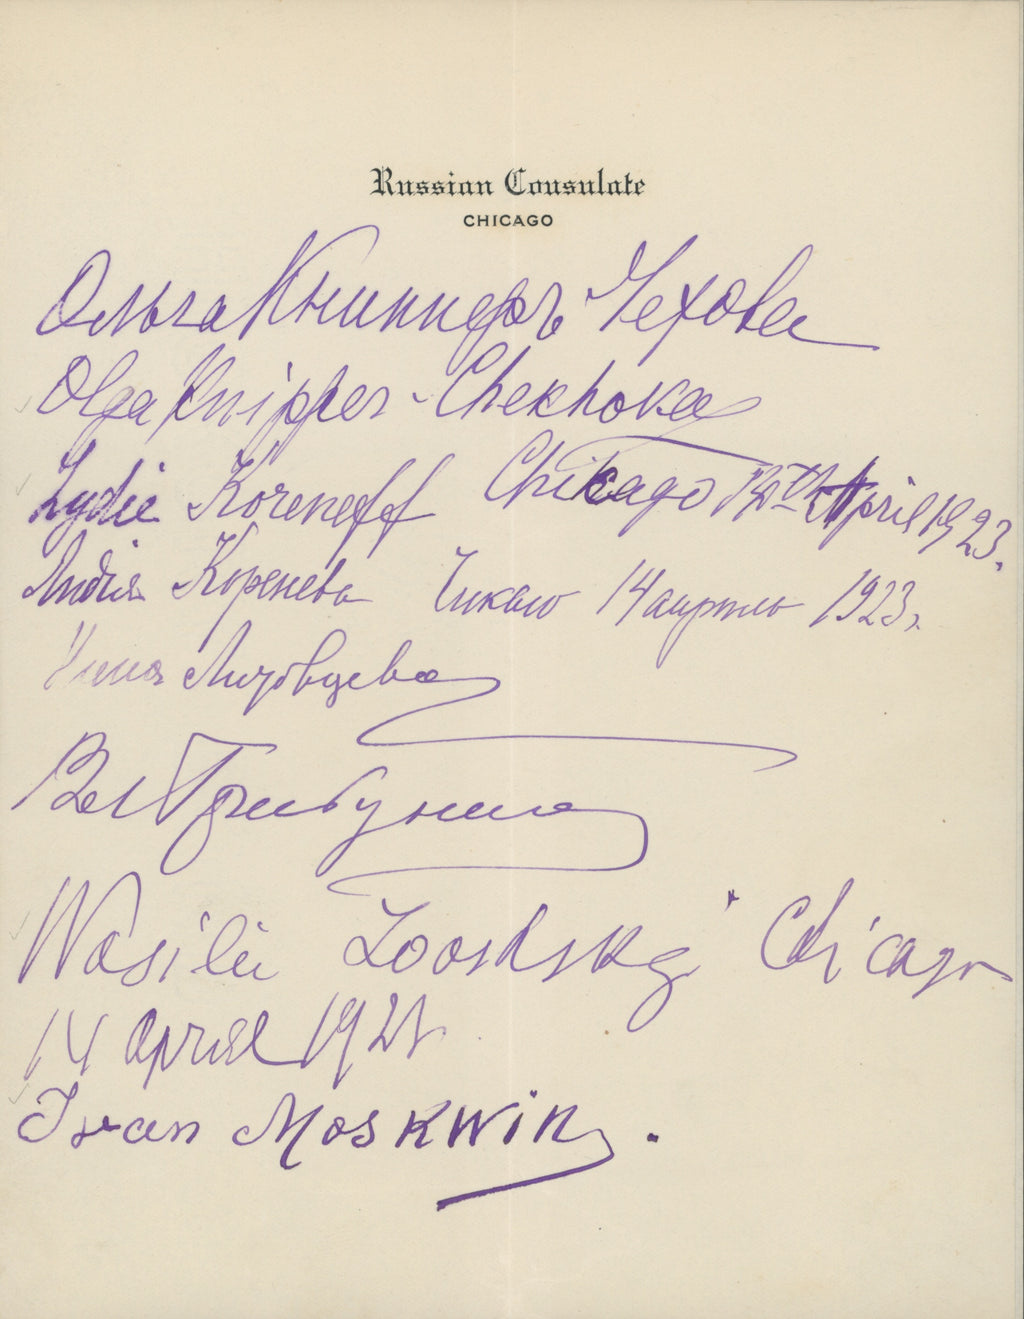 Russian Consulate
CHICAGO
Ольга Книпперъ-Чехова
Olga Knipper-Chekhova
Lydie Koreneff Chicago 14th April 1923.
Лидія Коренева Чикаго 14 апрѣль 1923 г.
Нина Литовцева
Вл Грибунин
Wasili Chicago
14 April 192
Ivan Moskwin.